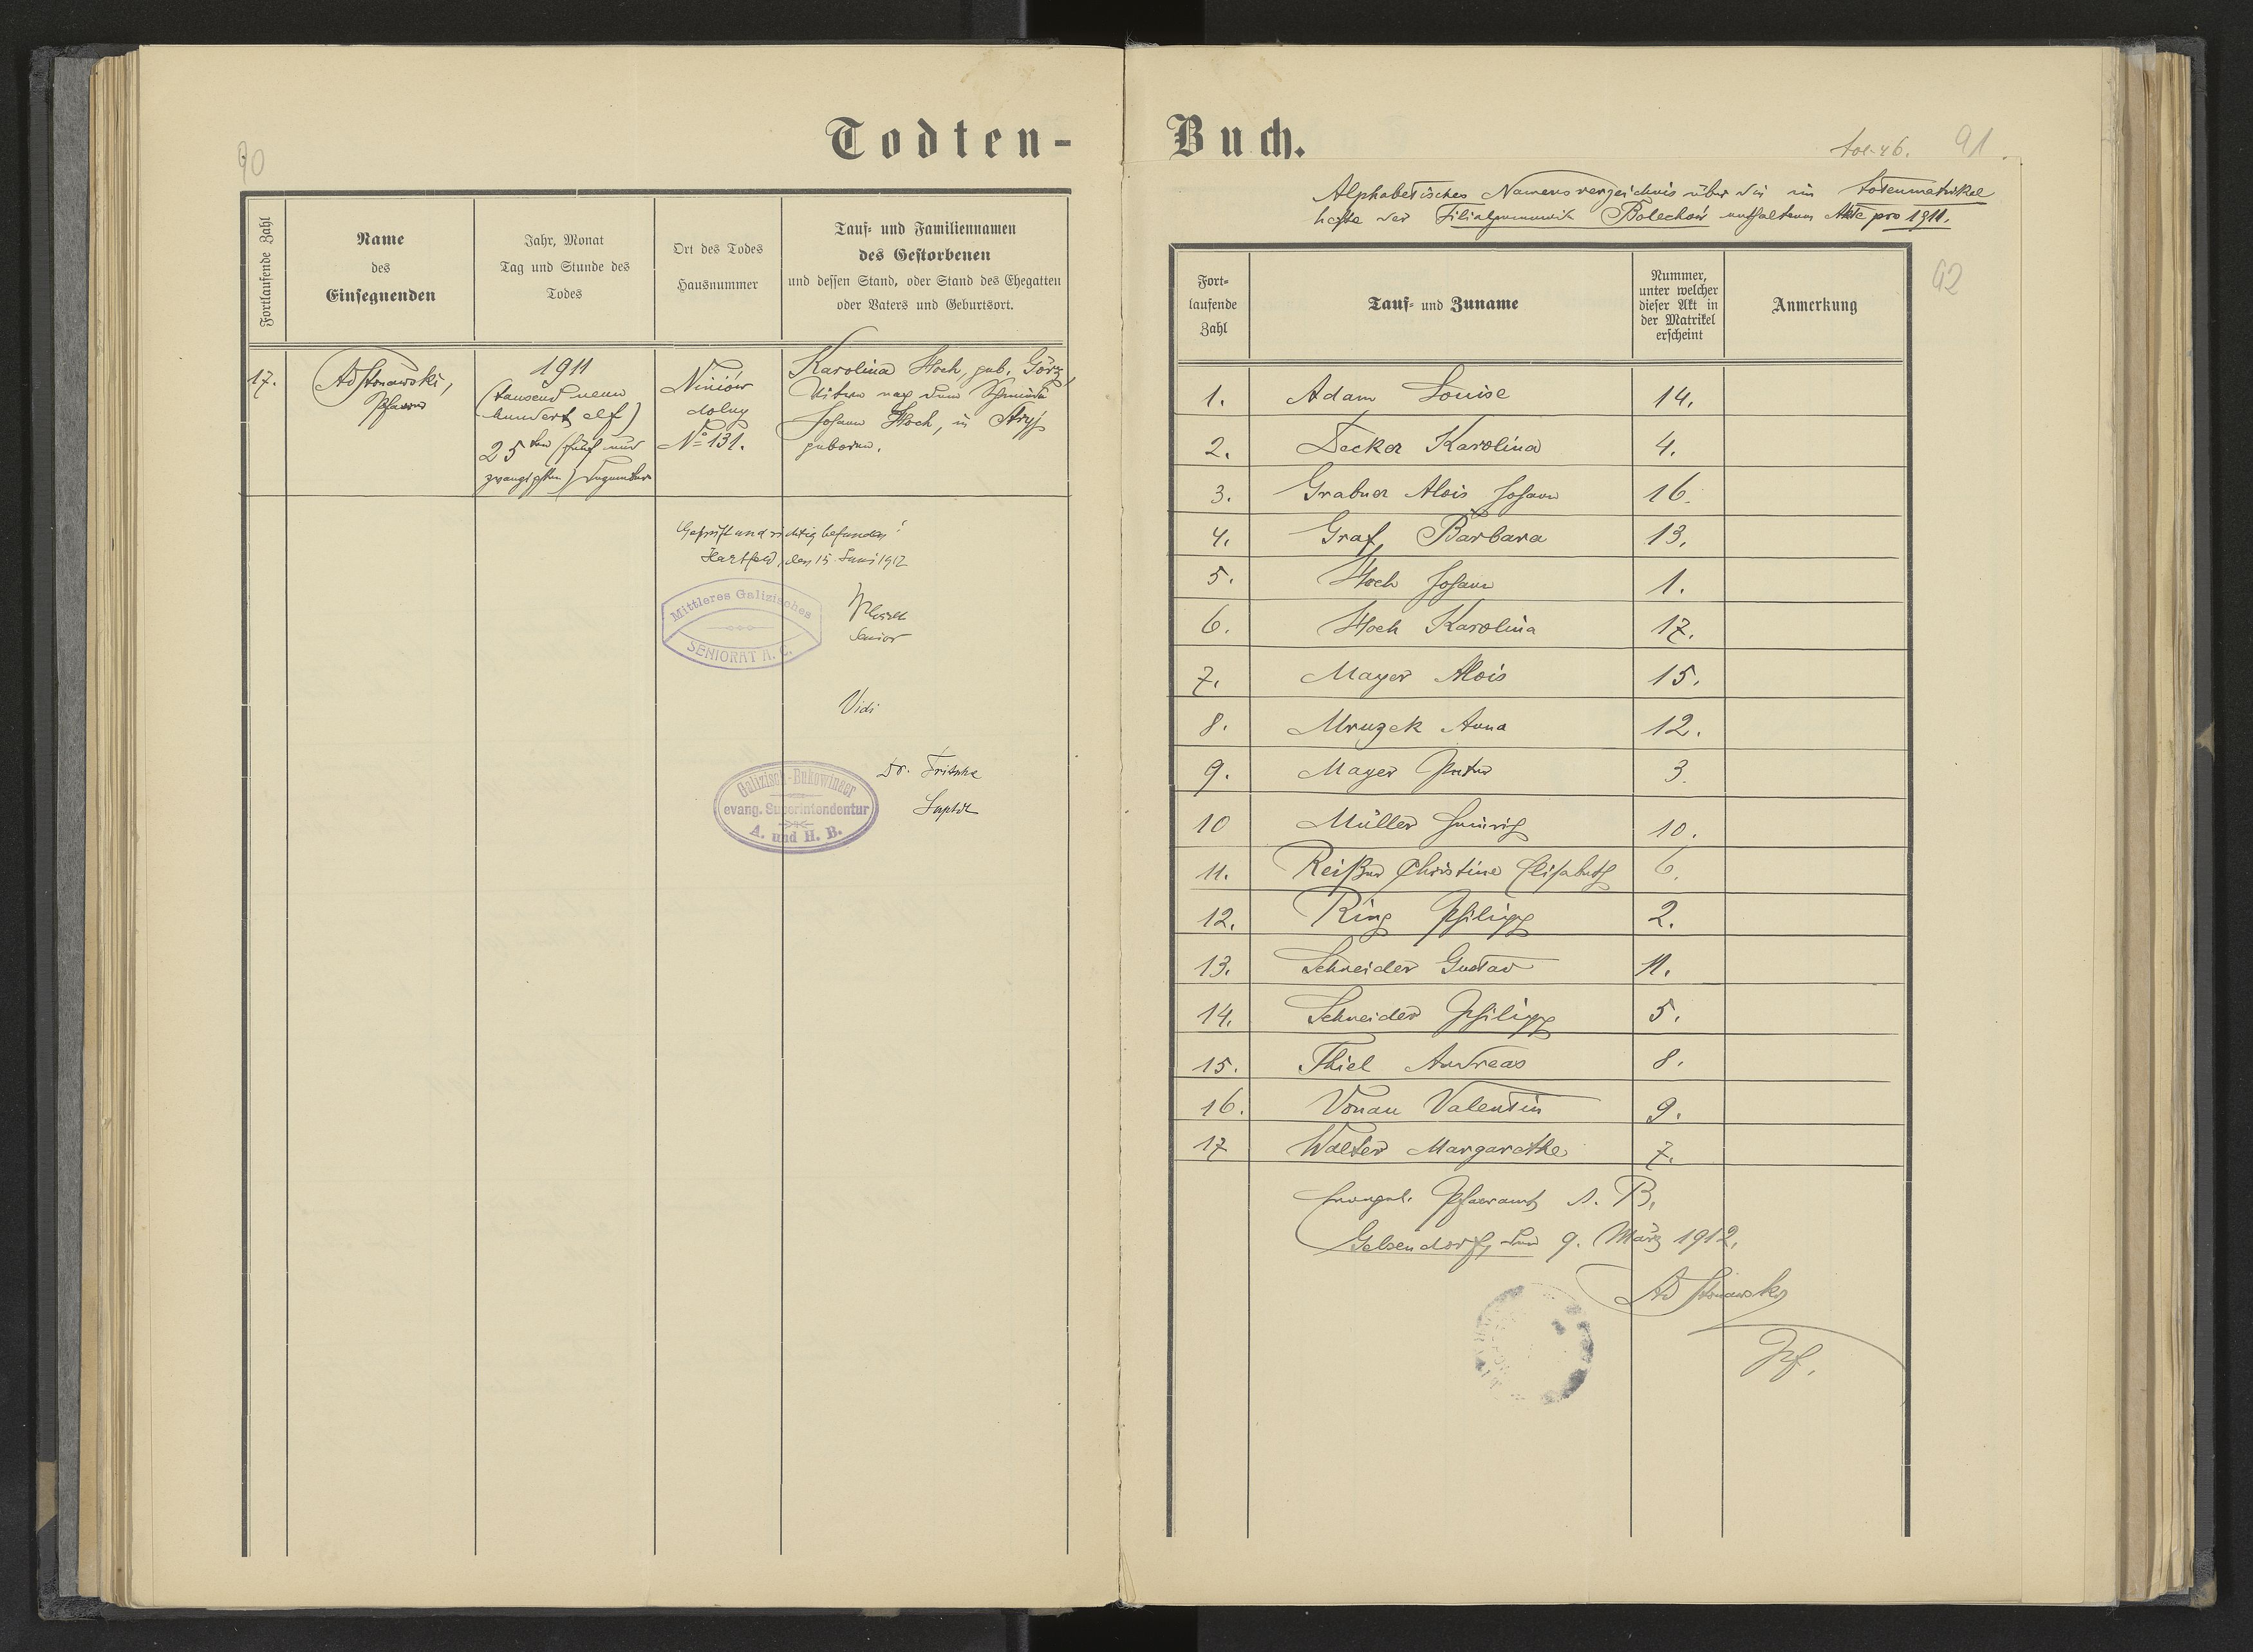 Todten-
90
Fortlaufende Zahl
Name
des
Einsegnenden
Jahr, Monat
Tag und Stunde des
Todes
Ort des Todes
Hausnummer
Tauf- und Familiennamen
des Gestorbenen
und dessen Stand, oder Stand des Ehegatten
oder Vaters und Geburtsort.
17.
Pfarrer
1911
(tausend neun
hundert elf)
25ten (fünf und
zwanzigsten) Dezember
Niniów
dolny
No 131.
Karolina Hoch, geb. Görz,
Witwe nach dem
Johann Hoch, in Stryj
geboren.
Geprüft und richtig befunden!
Hartfeld, den 15. Juni 1912
Mittleres Galizisches
SENIORAT A. C.
Senior
Vidi
Galizisch-Bukowinaer
evang. Superintendentur
A. und H. B.
Dr. Fritsche
Suptdt
Buch.
91.
Alphabetisches Namensverzeichnis über die im Totenmatrikel
hefte der Filialgemeinde Bolechów enthaltenen Akte pro 1911.
92
Fort-
laufende
Zahl
Tauf- und Zuname
Nummer,
unter welcher
dieser Akt in
der Matrikel
erscheint
Anmerkung
1. Adam Louise 14.
2. Decker Karolina 4.
3. Grabner Alois Johann 16.
4. Graf Barbara 13.
5. Hoch Johann 1.
6. Hoch Karolina 17.
7. Mayer Alois 15.
8. Mruzek Anna 12.
9. Mayer Peter 3.
10 Müller Heinrich 10.
11. Reißer Christine Elisabeth 6.
12. Ring Philipp 2.
13. Schneider Gustav 11.
14. Schneider Philipp 5.
15. Thiel Andreas 8.
16. Vonau Valentin 9.
17 Walter Margarethe 7.
Evangel. Pfarramt A. B.
Gelsendorf, den 9. März 1912.
Pf.